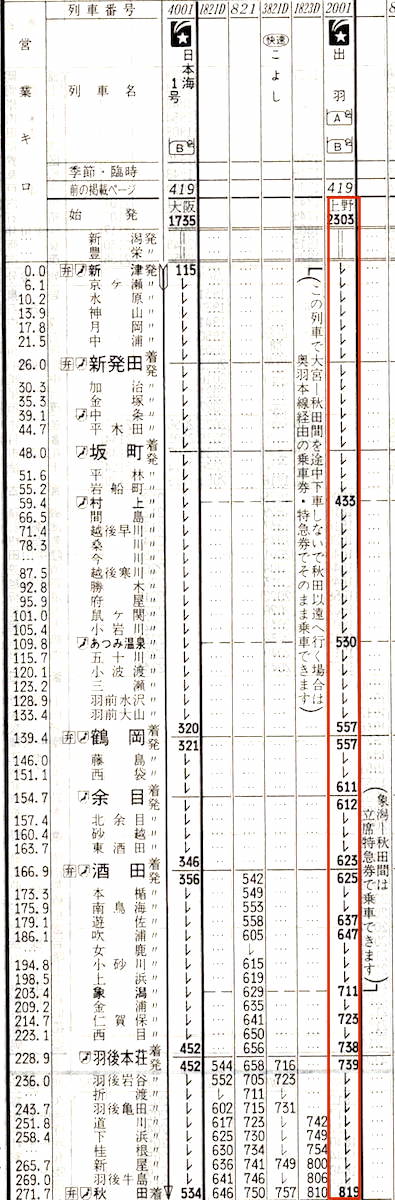 列車番号 4001 1821D 821 3821D 1823D 2001
営業キロ
列車名 日本海1号 快速 こよし 出羽
B A B
季節・臨時
前の掲載ページ 419 419
始発 大阪 1735 上野 2303
新潟発
豊栄〃
0.0 弁 新津発 115
6.1 京ケ瀬〃
10.2 水原〃
13.9 神山〃
17.8 月岡〃
21.5 中浦〃
26.0 弁 新発田 着発
30.3 加治〃
35.3 金塚〃
39.1 中条〃
44.7 平木田〃
48.0 坂町 着発
51.6 平林〃
55.2 岩船町〃
59.4 村上〃 433
66.5 間島〃
71.4 越後早川〃
78.3 桑川〃
… 今川〃
87.5 越後寒川〃
92.8 勝木〃
95.9 府屋〃
101.0 鼠ケ関〃
105.4 小岩川〃
109.8 あつみ温泉〃 530
115.7 五十川〃
120.1 小波渡〃
123.2 三瀬〃
128.9 羽前水沢〃
133.4 羽前大山〃
139.4 弁 鶴岡 着 320 557
発 321 557
146.0 藤島〃
151.1 西袋〃
154.7 余目 着 611
発 612
157.4 北余目〃
160.4 砂越〃
163.7 東酒田〃
166.9 弁 酒田 着 346 623
発 356 542 625
173.3 本楯〃 549
175.9 南鳥海〃 553
179.1 遊佐〃 558 637
186.1 吹浦〃 605 647
… 女鹿〃
194.8 小砂川〃 615
198.5 上浜〃 619
203.4 象潟〃 629 711
209.2 金浦〃 635
214.7 仁賀保〃 641 723
223.1 西目〃 650
228.9 羽後本荘 着 452 656 738
発 452 544 658 716 739
236.0 羽後岩谷〃 552 705 723
… 折渡〃 711
243.7 羽後亀田〃 602 715 731
251.8 道川〃 617 723 742
258.4 下浜〃 625 730 749
… 桂根〃 630 734 754
265.7 新屋〃 636 741 749 800
269.0 羽後牛島〃 641 746 806
271.7 弁 秋田着 534 646 750 757 810 819
(この列車で大宮―秋田間を途中下車しないで秋田以遠へ行く場合は
奥羽本線経由の乗車券・特急券でそのまま乗車できます)
(象潟―秋田間は
立席特急券で乗車できます)